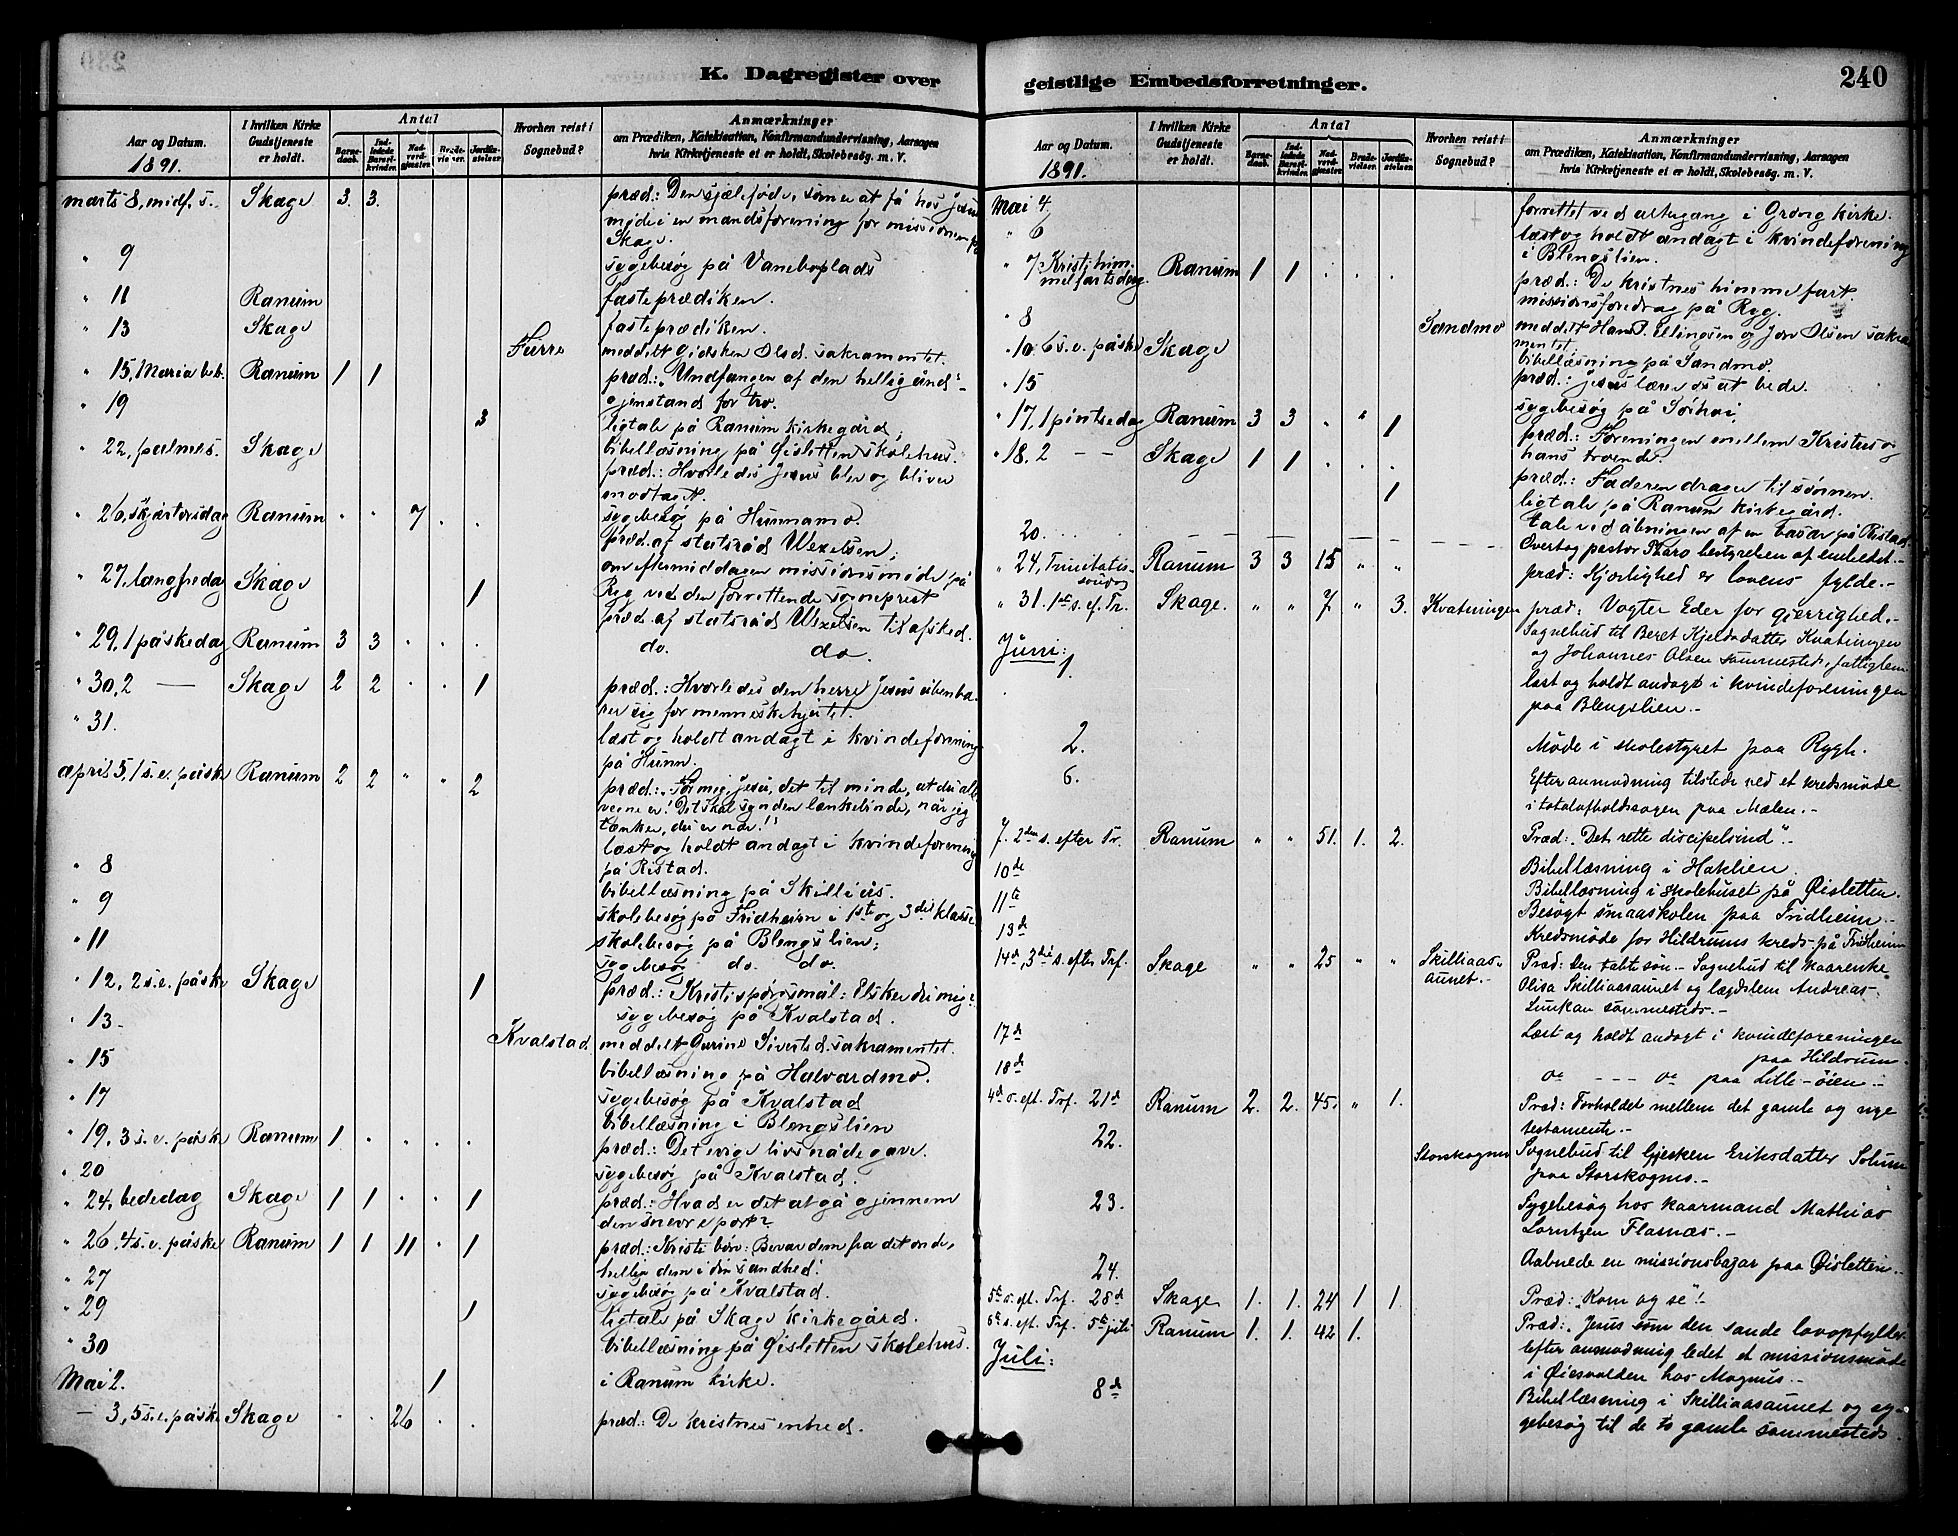 K. Dagregister over
Aar og Datum.
1891.
I hvilken Kirke Gudstjeneste er holdt.
Antal
Barne-daab.
Ind-ledede Barsel-kvinder.
Nad-verd-gjester.
Brude-vielser.
Jordfæ-stelser.
Hvorhen reist i Sognebud?
Anmærkninger
om Prædiken, Katekisation, Konfirmandundervisning, Aarsagen
hvis Kirketjeneste ei er holdt, Skolebesøg. m. V.
marts 8, midf. s. Skage 3. 3. præd.: Den sjæleføde, som er at få hos Jesus
møde i en mandsforening for missionen på
Skage.
" 9 sygebesøg på Vaneboplads
" 11 Ranum fasteprædiken.
" 13 Skage fasteprædiken.
Furre meddelt Gidsken Olsd. sakramentet.
" 15, Maria beb. Ranum 1 1 præd.: "Undfangen af den hellig ånd" -
gjenstand for tro.
" 19 3 ligtale på Ranum kirkegård;
bibellæsning på Øisletten skolehus.
" 22, palmes. Skage præd.: Hvorledes Jesus blev og bliver
modtaget.
sygebesøg på Hunnamo.
" 26, skjærtorsdag Ranum " " 7 . . præd. af statsråd Wexelsen;
om eftermiddagen missionsmøde på
Ryg ved den forrettende sogneprest
" 27, langfredag Skage 1 præd. af statsråd Wexelsen til afsked.
" 29, 1 påskedag Ranum 3 3 . . . do. do.
" 30, 2 — Skage 2 2 . . 1 præd.: Hvorledes den herre Jesus åbenba-
rer sig for menneskehjertet.
" 31. læst og holdt andagt i kvindeforening
på Hunn.
april 5, 1 s. e. påske Ranum 2 2 " " 2 præd.: "For mig, Jesu, det til minde, at du alle-
vegne er! Det skal synden lænkebinde, når jeg
tænker, du er nær!"
læst og holdt andagt i kvindeforening
" 8 på Ristad.
" 9 bibellæsning på Skilliås.
skolebesøg på Fridheim i 1ste og 3die klasse
" 11 skolebesøg på Blengslien;
sygebesøg do. do.
" 12, 2 s. e. påske Skage 1 præd.: Kristi spørgsmål: Elsker du mig?
" 13 sygebesøg på Kvalstad.
Kvalstad. meddelt Gurine Sivertsd. sakramentet.
" 15 bibellæsning på Halvardmo.
" 17 sygebesøg på Kvalstad
bibellæsning i Blengslien
" 19, 3 s. e. påske Ranum 1 . . . . præd.: Det evige livs nådegave.
" 20 sygebesøg på Kvalstad.
" 24, bededag Skage 1 1 . . 1 præd.: Hvad er det at gå gjennem
den snevre port?
" 26, 4 s. e. påske Ranum 1 1 11 . 1 præd.: Kristi bøn: Bevar dem fra det onde,
hellige dem i din sandhed!
" 27 sygebesøg på Kvalstad.
" 29 1 ligtale på Skage kirkegård.
" 30 bibellæsning på Øisletten skolehus.
Mai 2. 1 i Ranum kirke.
— 3, 5 s. e. påske Skage . . 26 . . præd.: De kristnes enhed.
geistlige Embedsforretninger.
240
Aar og Datum.
1891.
I hvilken Kirke Gudstjeneste er holdt.
Antal
Barne-daab.
Ind-ledede Barsel-kvinder.
Nad-verd-gjester.
Brude-vielser.
Jordfæ-stelser.
Hvorhen reist i Sognebud?
Anmærkninger
om Prædiken, Katekisation, Konfirmandundervisning, Aarsagen
hvis Kirketjeneste ei er holdt, Skolebesøg. m. V.
Mai 4. forrettet ved altergang i Grong kirke.
" 6 læst og holdt andagt i kvindeforening
i Blengslien.
" 7 Kristi him-
melfartsdag. Ranum 1 1 . . . præd.: De kristnes himmelfart.
missionsforedrag på Ryg.
" 8 Sandmo meddelt Hans P. Ellingsen og Jon Olsen sakra-
mentet.
bibellæsning på Sandmo.
" 10. 6 s. e. påske Skage præd.: Jesus lærer os at bede.
" 15 sygebesøg på Sörhøi
" 17, 1 pintsedag Ranum 3 3 . " 1 præd.: Foreningen mellem Kristus og
hans troende.
" 18. 2 — — Skage 1 1 . . . præd.: Faderen drager til sønnen.
1 ligtale på Ranum kirkegård.
20. tale ved åbningen af en basar på Ristad.
Overtog pastor Skard bestyrelsen af embedet.-
" 24, Trinitatis-
søndag Ranum 3 3 15 " " præd: Kjærlighed er lovens fylde.-
" 31. 1ste s. ef. Tr. Skage. " " 7 " 3. Kvatningen præd: Vogter Eder for gjerrighed.-
Sognebud til Beret Kjeldsdatter Kvatningen
og Johannes Olsen sammesteds, fattiglem
Juni:
1 læst og holdt andagt i kvindeforeningen
paa Blengslien.-
2. Møde i skolestyret paa Rygh.
6. Efter anmodning tilstede ved et kredsmøde
i totalafholdssagen paa Mælen.-
7. 2den s. efter Tr. Ranum " " 51. 1. 2. Præd: "Det rette discipelsind".-
10de Bibellæsning i Haklien.
11te Bibellæsning i skolehuset på Øisletten.
Besøgt smaaskolen paa Fridheim.-
13de Kredsmøde for Hildrums kreds på Fridheim
14de, 3die s. efter Trf. Skage " " 25 " " Skilliaas-
aunet.- Præd: Den tabte søn.- Sognebud til kaarenke
Olisa Skilliaasaunet og lægdslem Andreas
sammesteds.-
17de Læst og holdt andagt i kvindeforeningen
paa Hildrum.
18de do - - - do paa Lille-øien.-
4de s. eft. Trf. 21de Ranum 2. 2. 45. " 1. Præd: Forholdet mellem det gamle og nye
testamente.-
22. Storskogmo Sognebud til Gjesken Eriksdatter Solum
paa Storskogmo.-
23. Sygebesøg hos kaarmand Mathias
Lorntzen Flasnæs.-
24. Aabnede en missionsbazar paa Øisletten.-
5te s. eft. Trf. 28de Skage 1. 1. 24 1 1. Præd: "Kom og se"!-
6te s. eft. Trf. 5te juli Ranum 1. 1. 42 1. Præd: "Jesus som den sande lovopfylder
Juli: efter anmodning ledet et missionsmøde
i Øiesvolden hos Magnus.-
8de Bibellæsning i Skilliaasaunet og sy-
gebesøg til de to gamle sammesteds.